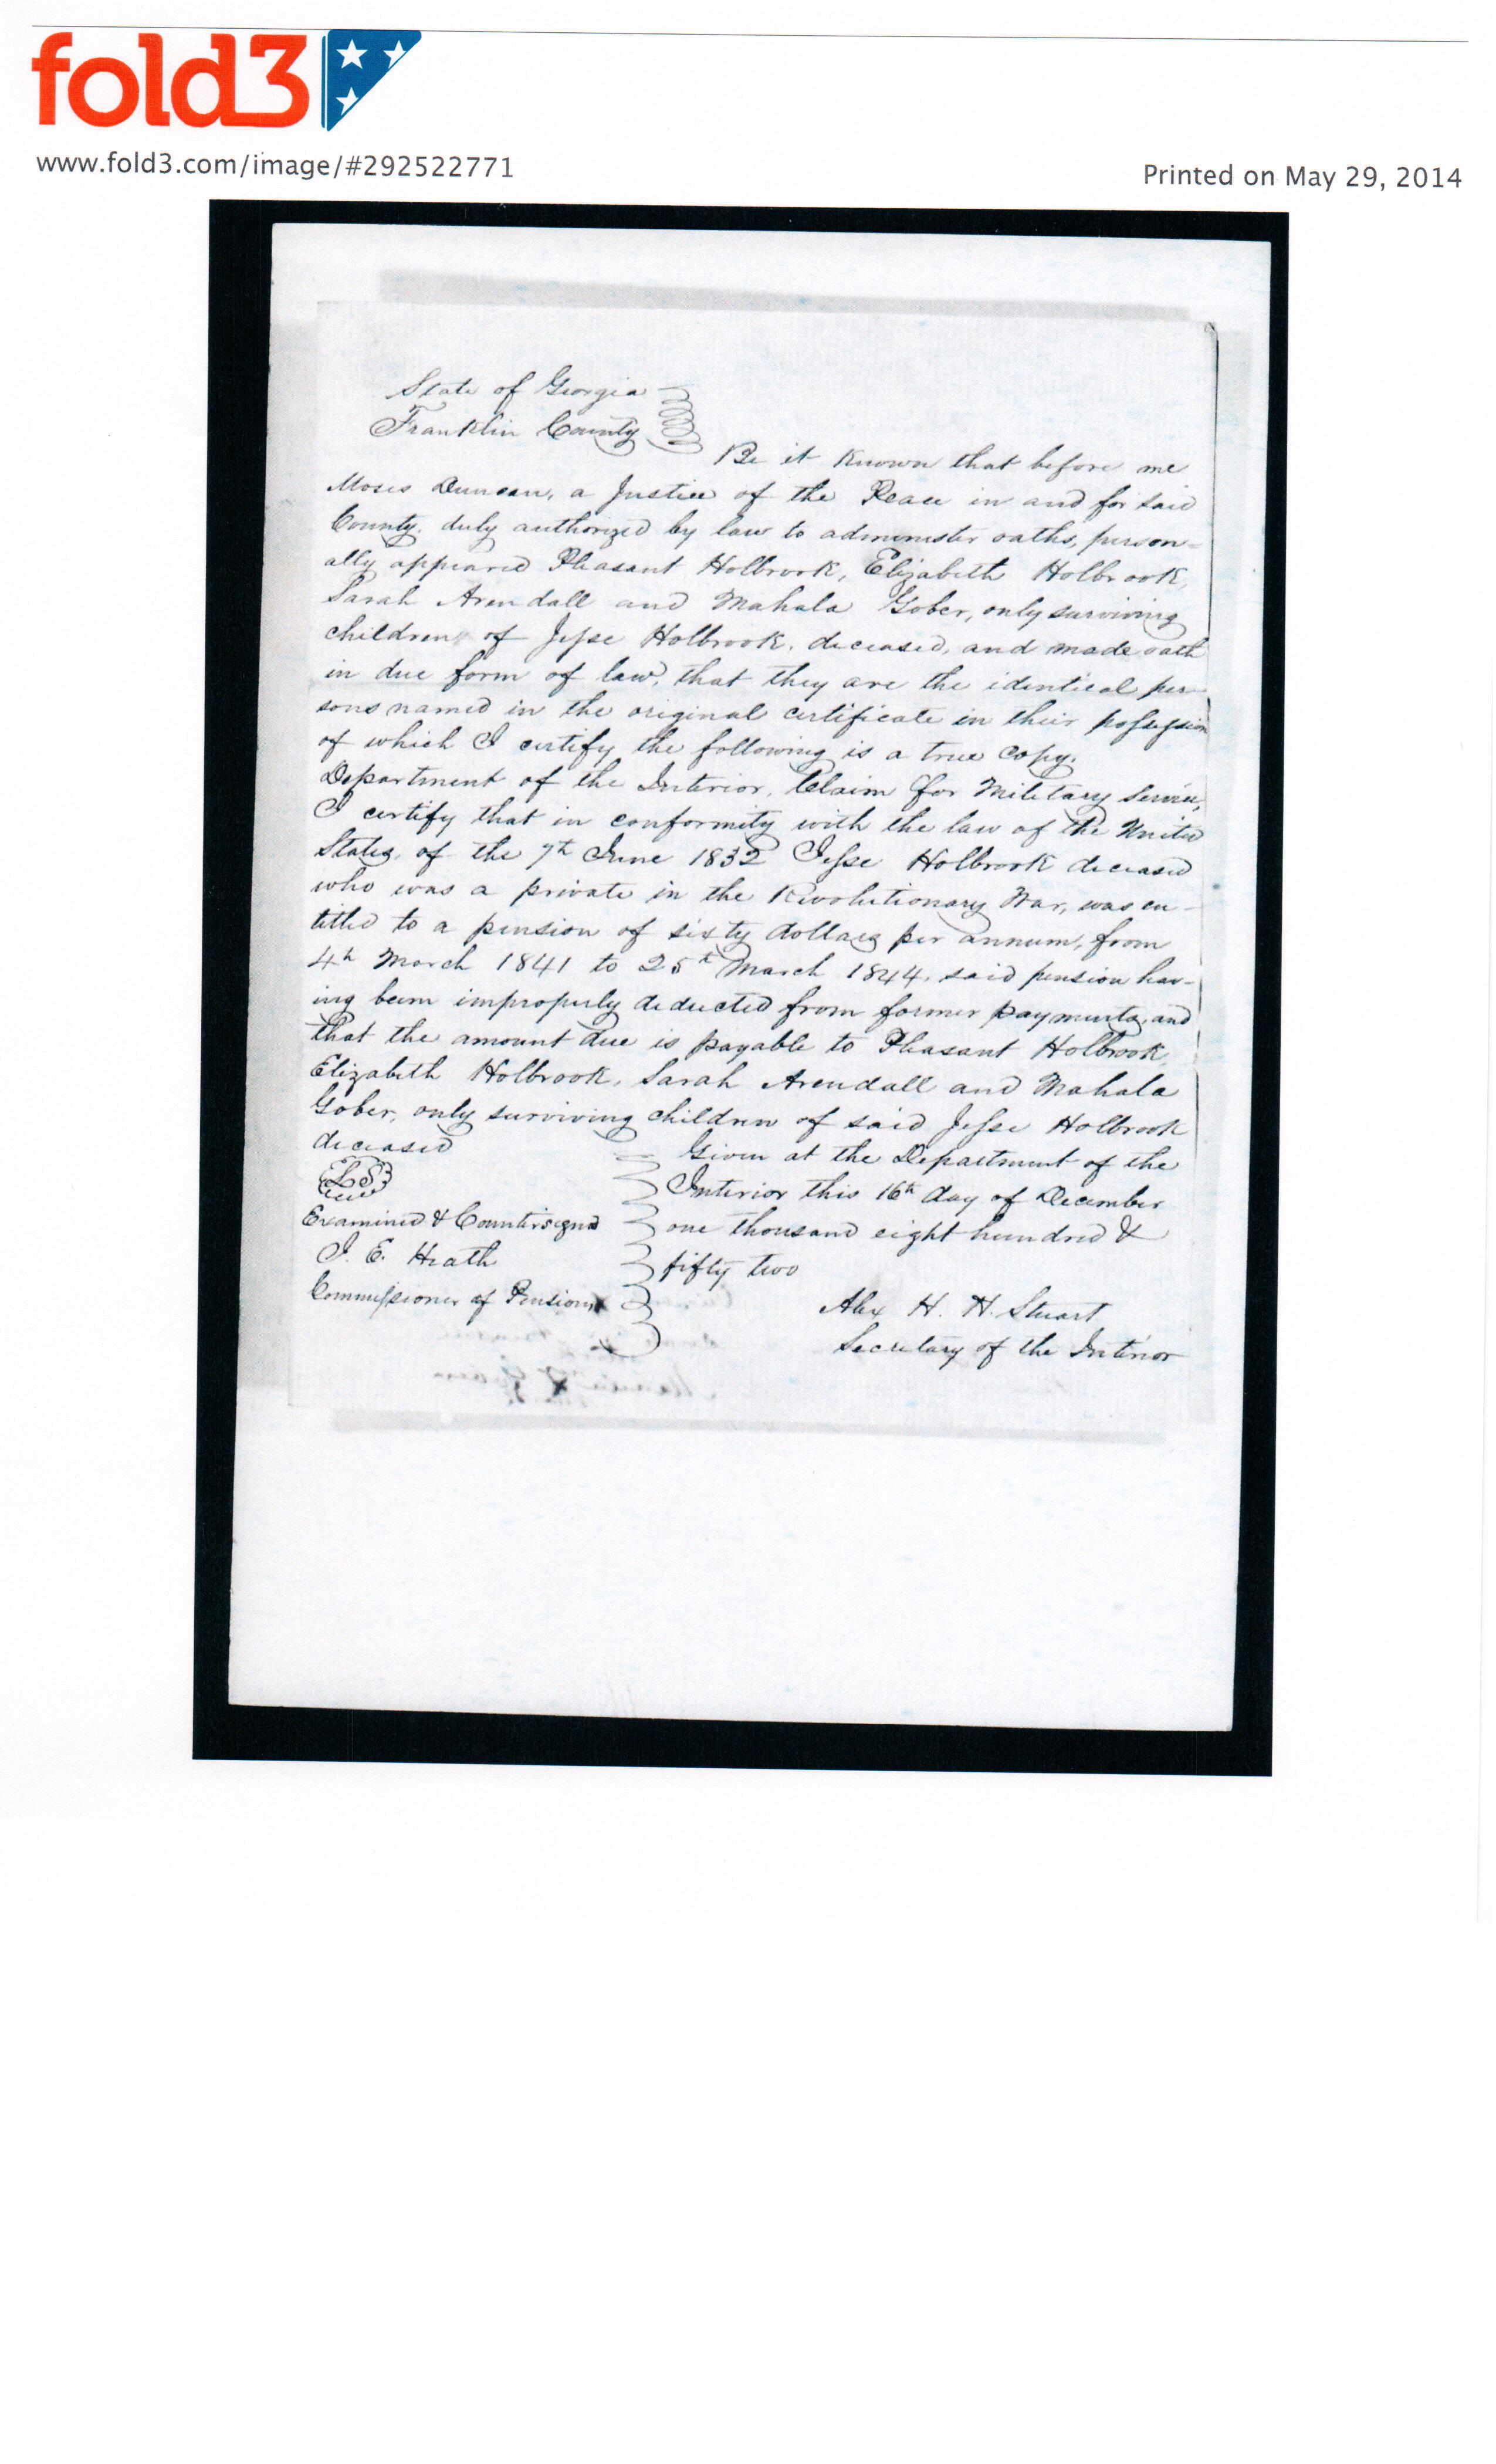 fold3
www.fold3.com/image/#292522771
Printed on May 29, 2014
State of Georgia
Franklin County
Be it Known that before me
Moses Duncan, a Justice of the Peace in and for said
County, duly authorized by law to administer oaths, person-
ally appeared Pleasant Holbrook, Elizabeth Holbrook,
Sarah Arendall and Mahala Gober, only surviving
children of Jesse Holbrook, deceased, and made oath
in due form of law, that they are the identical per-
sons named in the original certificate in their possession
of which I certify the following is a true copy.
Department of the Interior, Claim for Military Service,
I certify that in conformity with the law of the United
States, of the 7th June 1832 Jesse Holbrook deceased
who was a private in the Revolutionary War, was en-
titled to a pension of sixty dollars per annum, from
4th March 1841 to 25th March 1844, said pension hav-
ing been improperly deducted from former payments, and
that the amount due is payable to Pleasant Holbrook
Elizabeth Holbrook, Sarah Arendall and Mahala
Gober, only surviving children of said Jesse Holbrook
deceased
Given at the Department of the
Interior this 16th day of December
one thousand eight hundred &
fifty two
LS
Examined & Countersigned
J. E. Heath
Commissioner of Pensions
Alex H. H. Stuart
Secretary of the Interior